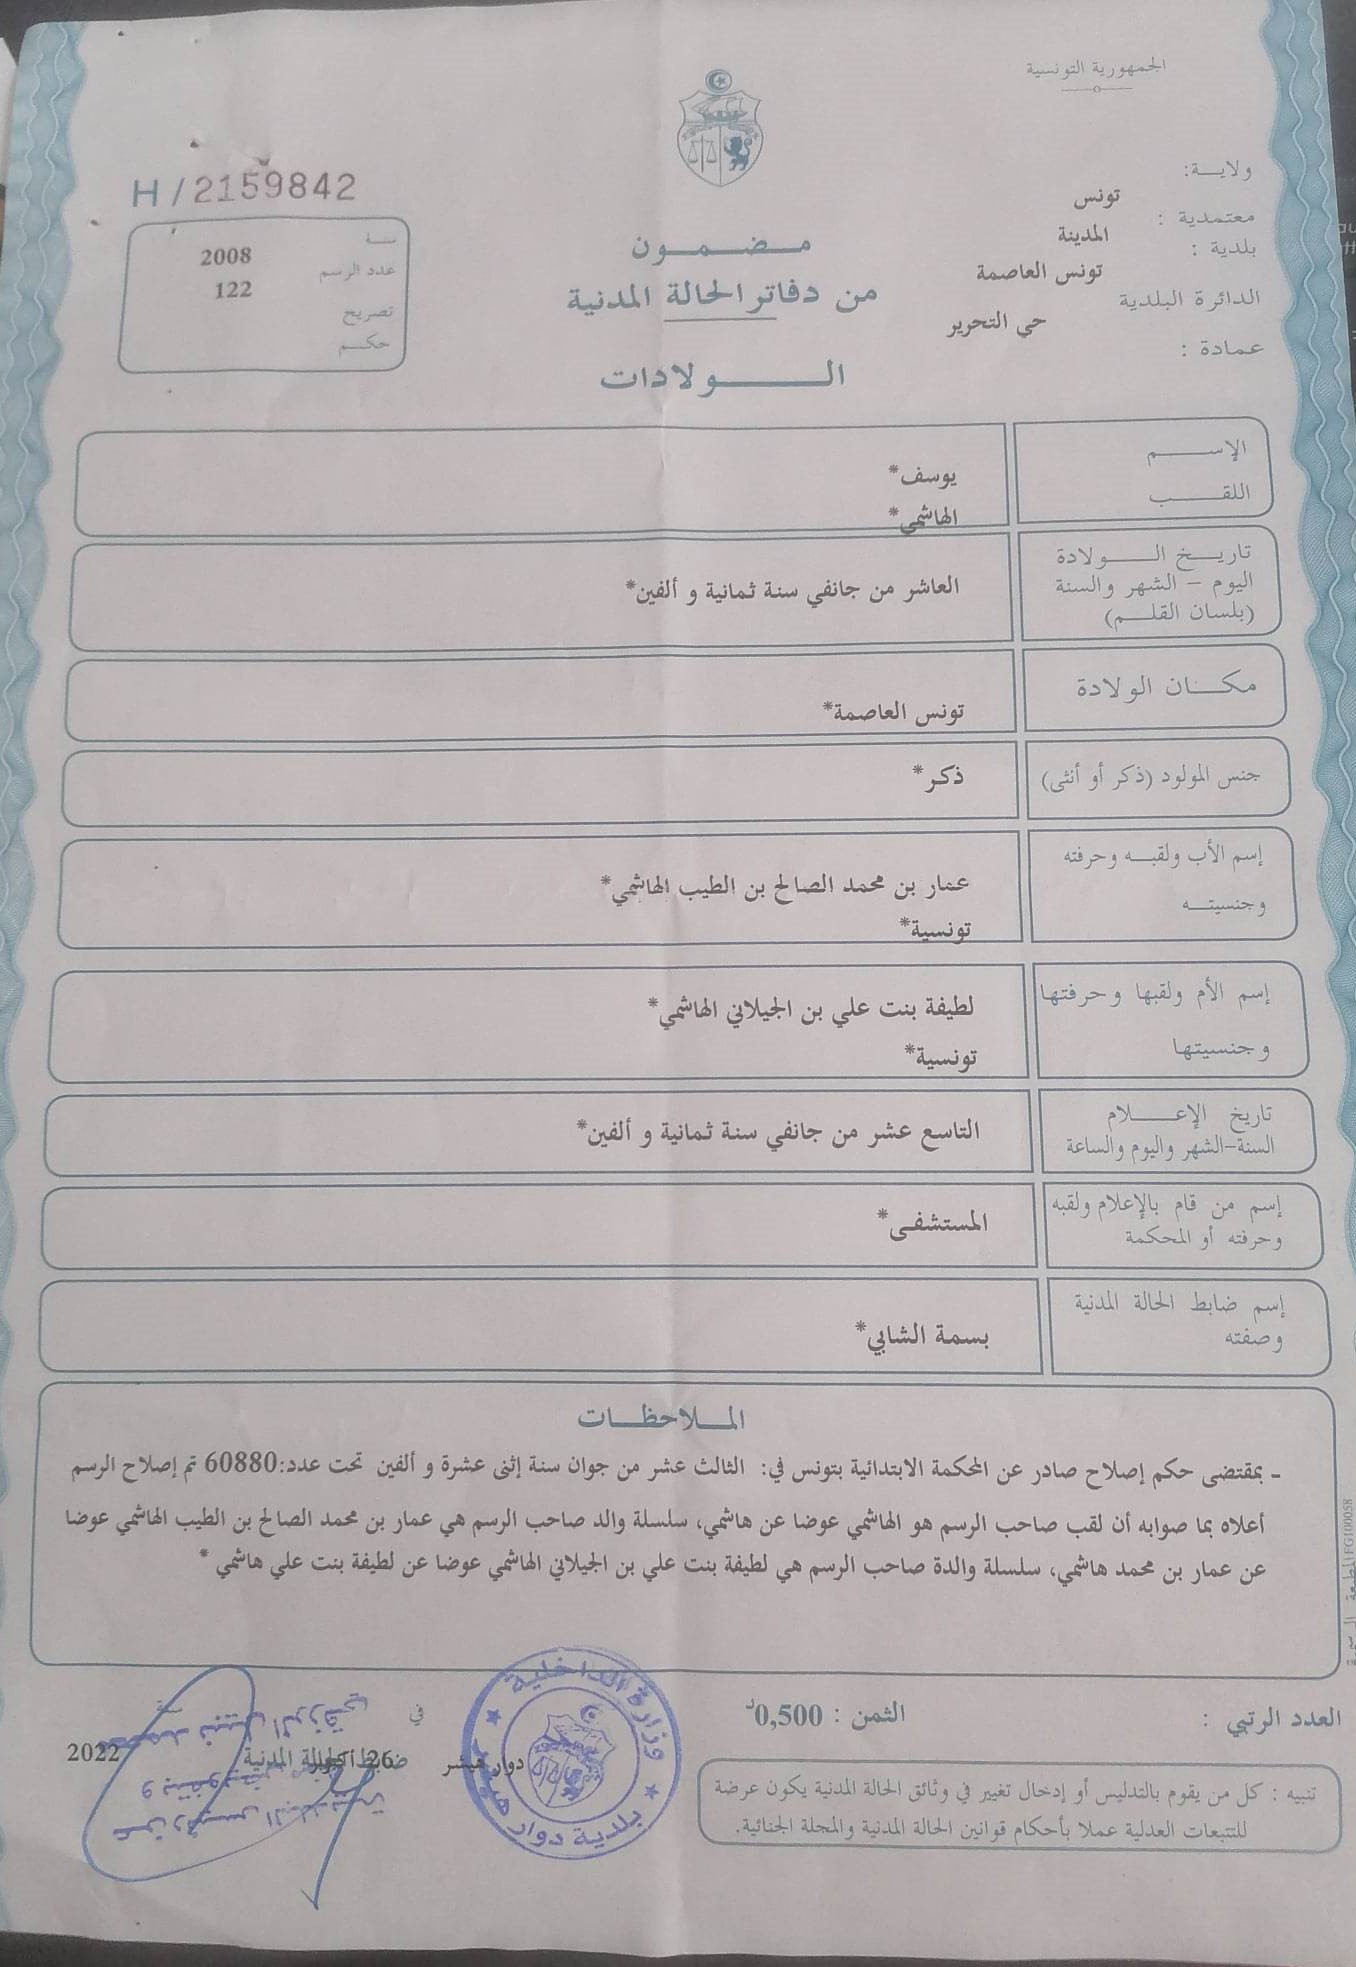 الجمهورية التونسية
ولاية:
تونس
معتمدية :
المدينة
بلدية :
تونس العاصمة
الدائرة البلدية
حي التحرير
عمادة :
H/2159842
سنة
2008
عدد الرسم
122
تصريح
حكم
مضمون
من دفاتر الحالة المدنية
الولادات
الإسم
يوسف*
اللقب
الهاشمي*
تاريخ الولادة
اليوم - الشهر والسنة
(بلسان القلم)
العاشر من جانفي سنة ثمانية و ألفين*
مكان الولادة
تونس العاصمة*
جنس المولود (ذكر أو أنثى)
ذكر*
إسم الأب ولقبه وحرفته
وجنسيته
عمار بن محمد الصالح بن الطيب الهاشمي*
تونسية*
إسم الأم ولقبها وحرفتها
وجنسيتها
لطيفة بنت علي بن الجيلاني الهاشمي*
تونسية*
تاريخ الإعلام
السنة-الشهر واليوم والساعة
التاسع عشر من جانفي سنة ثمانية و ألفين*
إسم من قام بالإعلام ولقبه
وحرفته أو المحكمة
المستشفى*
إسم ضابط الحالة المدنية
وصفته
بسمة الشابي*
الملاحظات
- بمقتضى حكم إصلاح صادر عن المحكمة الابتدائية بتونس في: الثالث عشر من جوان سنة إثنى عشرة و ألفين تحت عدد:60880 تم إصلاح الرسم
أعلاه بما صوابه أن لقب صاحب الرسم هو الهاشمي عوضا عن هاشمي، سلسلة والد صاحب الرسم هي عمار بن محمد الصالح بن الطيب الهاشمي عوضا
عن عمار بن محمد هاشمي، سلسلة والدة صاحب الرسم هي لطيفة بنت علي بن الجيلاني الهاشمي عوضا عن لطيفة بنت علي هاشمي *
العدد الرتبي :
الثمن : 0,500د
تنبيه : كل من يقوم بالتدليس أو إدخال تغيير في وثائق الحالة المدنية يكون عرضة
للتتبعات العدلية عملا بأحكام قوانين الحالة المدنية والمجلة الجنائية.
وزارة الداخلية
بلدية دوار هيشر
دوار هيشر
في
26
2022
ضابط الحالة المدنية